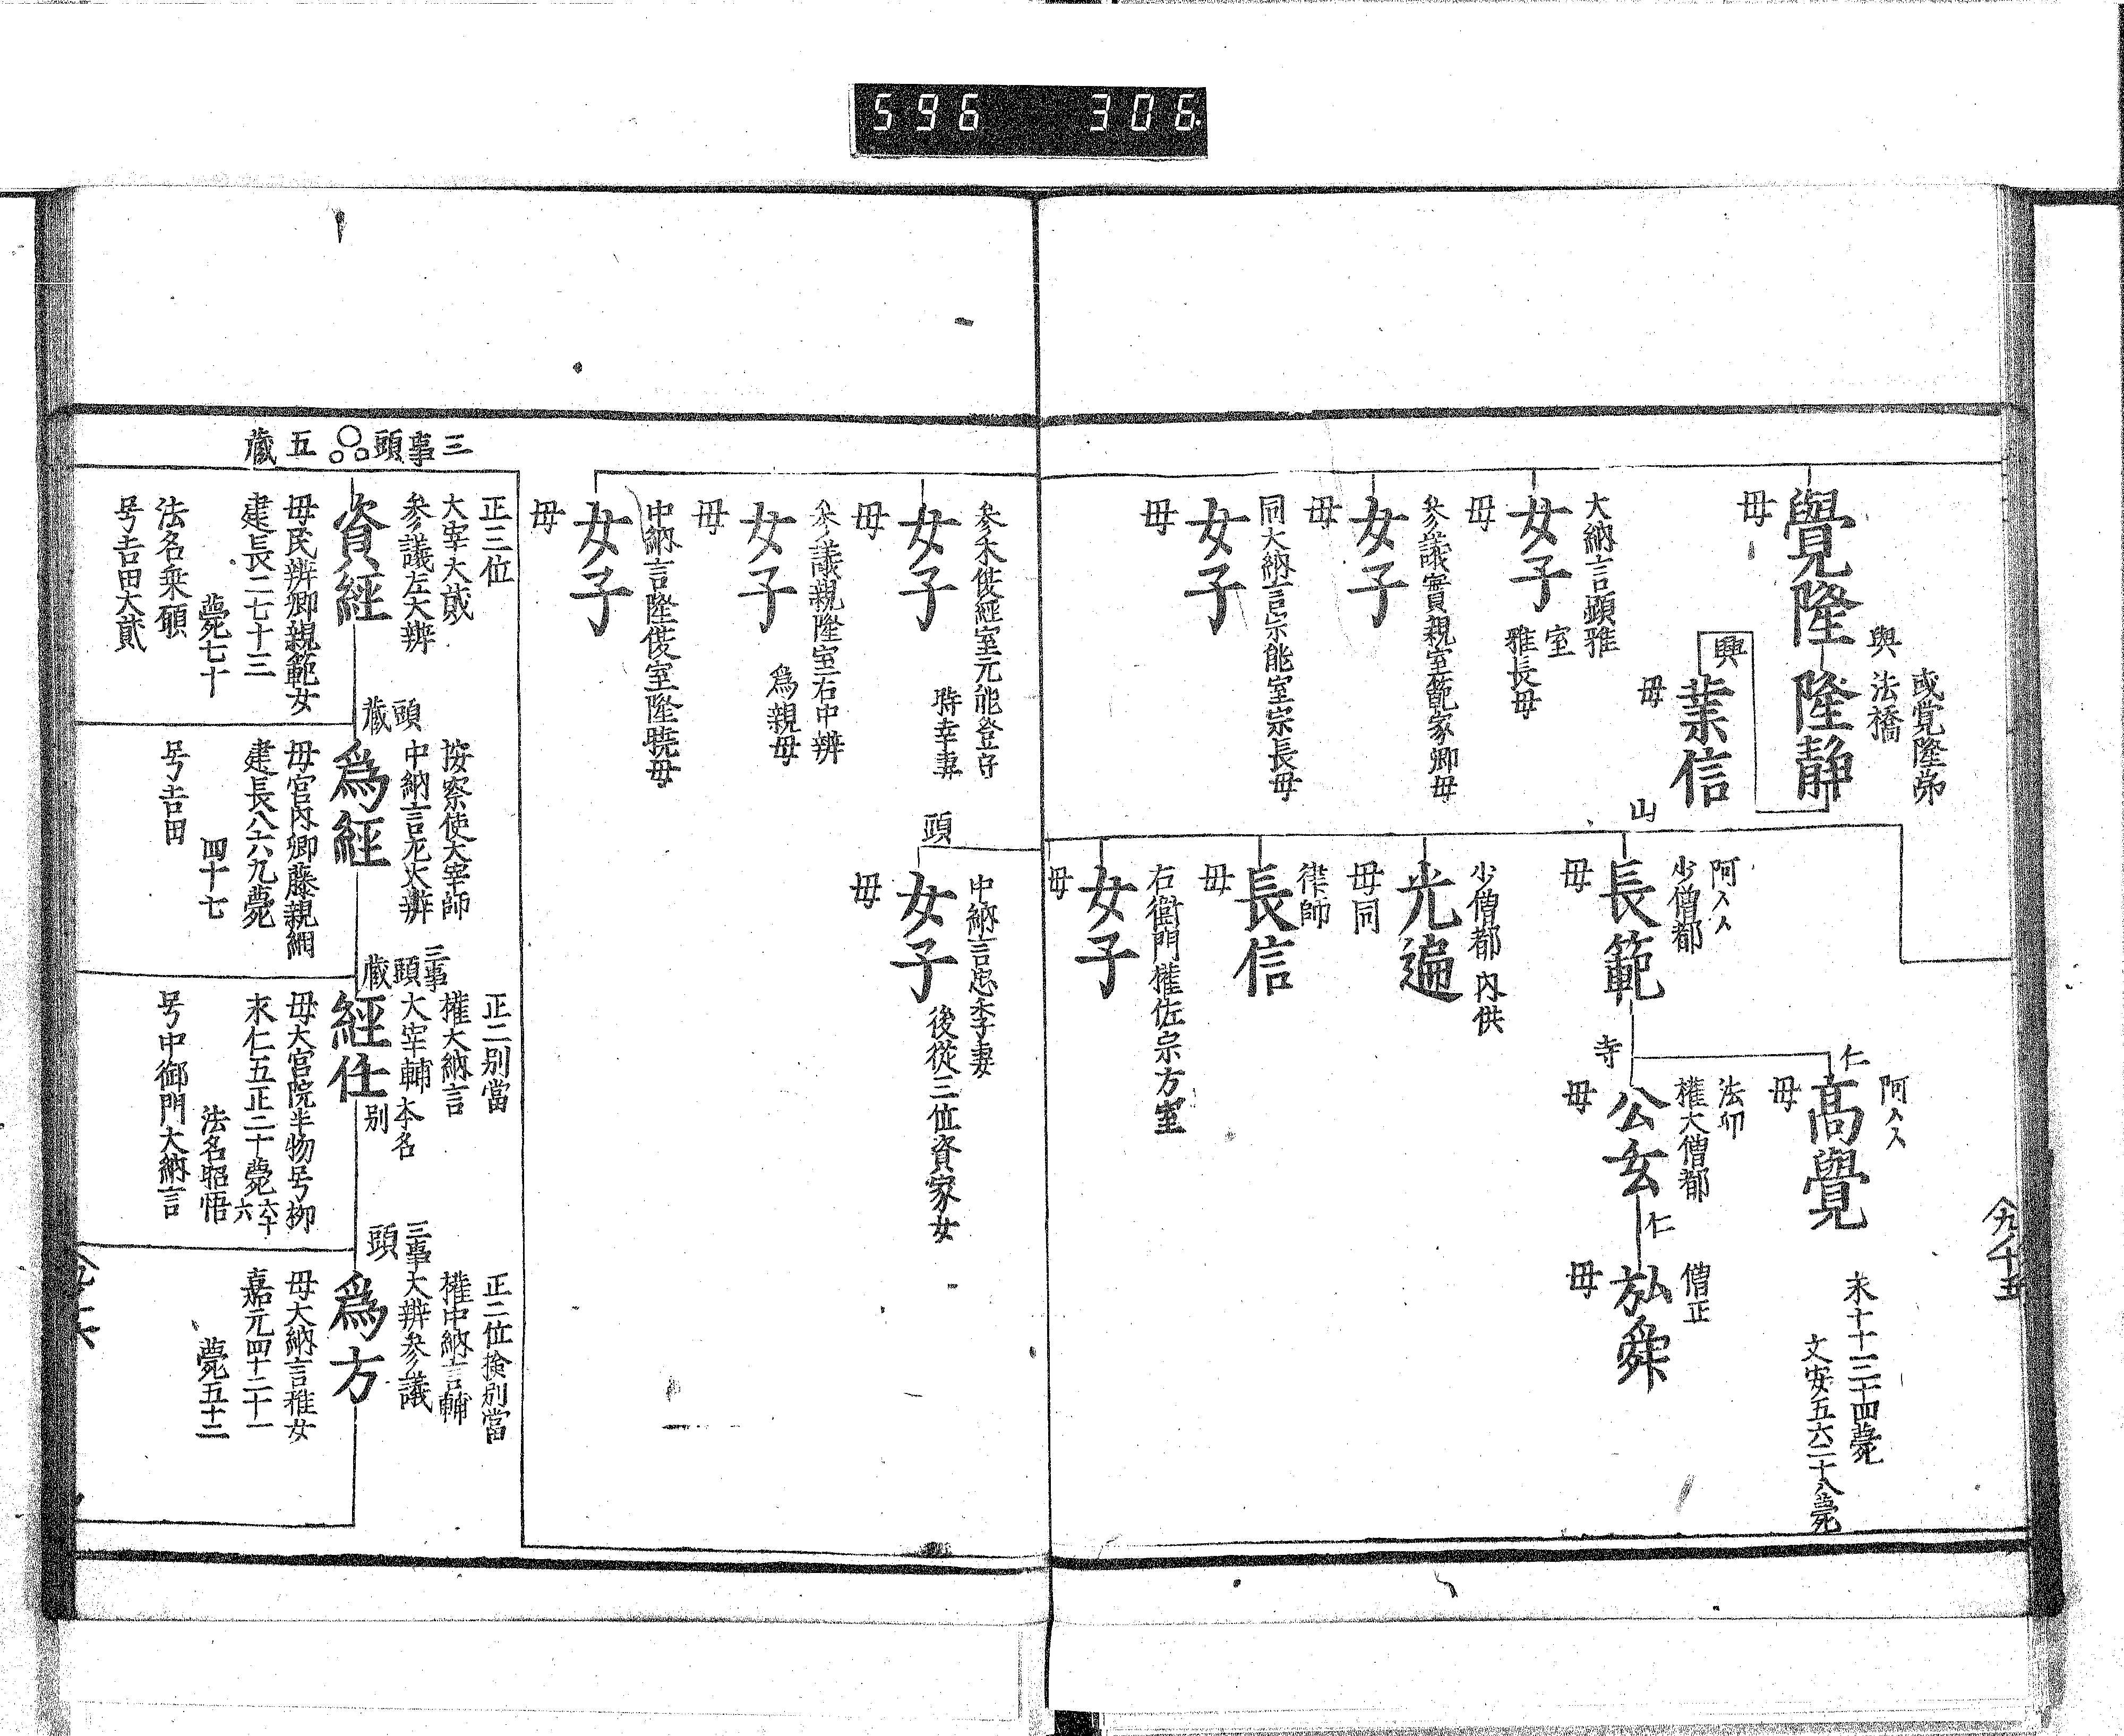 596 306.
覺隆
母
隆靜
興
法橋
或覚隆弟
興
業信
母
大納言顕雅
室
雅長母
女子
母
参議實親室範家卿母
女子
母
同大納言宗能室宗長母
女子
母
山
阿人人
少僧都
長範
母
仁
阿人人
高覺
母
末十十二三十四薨
文安五六二十八薨
寺
法印
権大僧都
公玄
母
仁
僧正
弘舜
母
少僧都 内供
光遍
母同
律師
長信
母
右衛門権佐宗方室
女子
母
参木俊經室元能登守
時幸妻
女子
母
参議親隆室右中辨
為親母
女子
母
中納言隆俊室隆曉母
女子
母
頭
中納言忠季妻
後從三位資家女
女子
母
三事頭
五蔵
正三位
大宰大貮
参議左大辨
資經
母民辨卿親範女
建長二七十三
薨七十
法名乗願
号吉田大貮
頭
蔵
按察使大宰師
中納言左大辨
為經
母宮内卿藤親綱
建長八六九薨
四十七
号吉田
三事
頭
蔵
正二別當
権大納言
大宰輔
本名
別
經任
母大宮院半物号柳
永仁五正二十薨六十六
法名昭悟
号中御門大納言
三事
頭
正二位検別當
権中納言輔
大辨参議
為方
母大納言雅女
嘉元四十二十一
薨五十二
九ノ十五